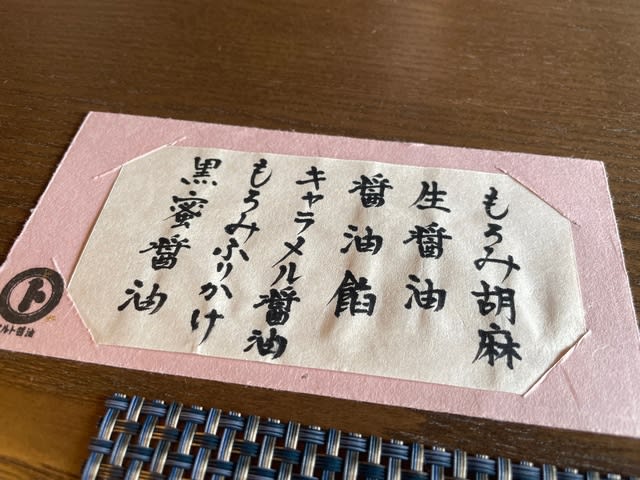 もろみ胡麻
生醤油
醤油餡
キャラメル醤油
もろみふりかけ
黒蜜醤油
ト
ルト醤油